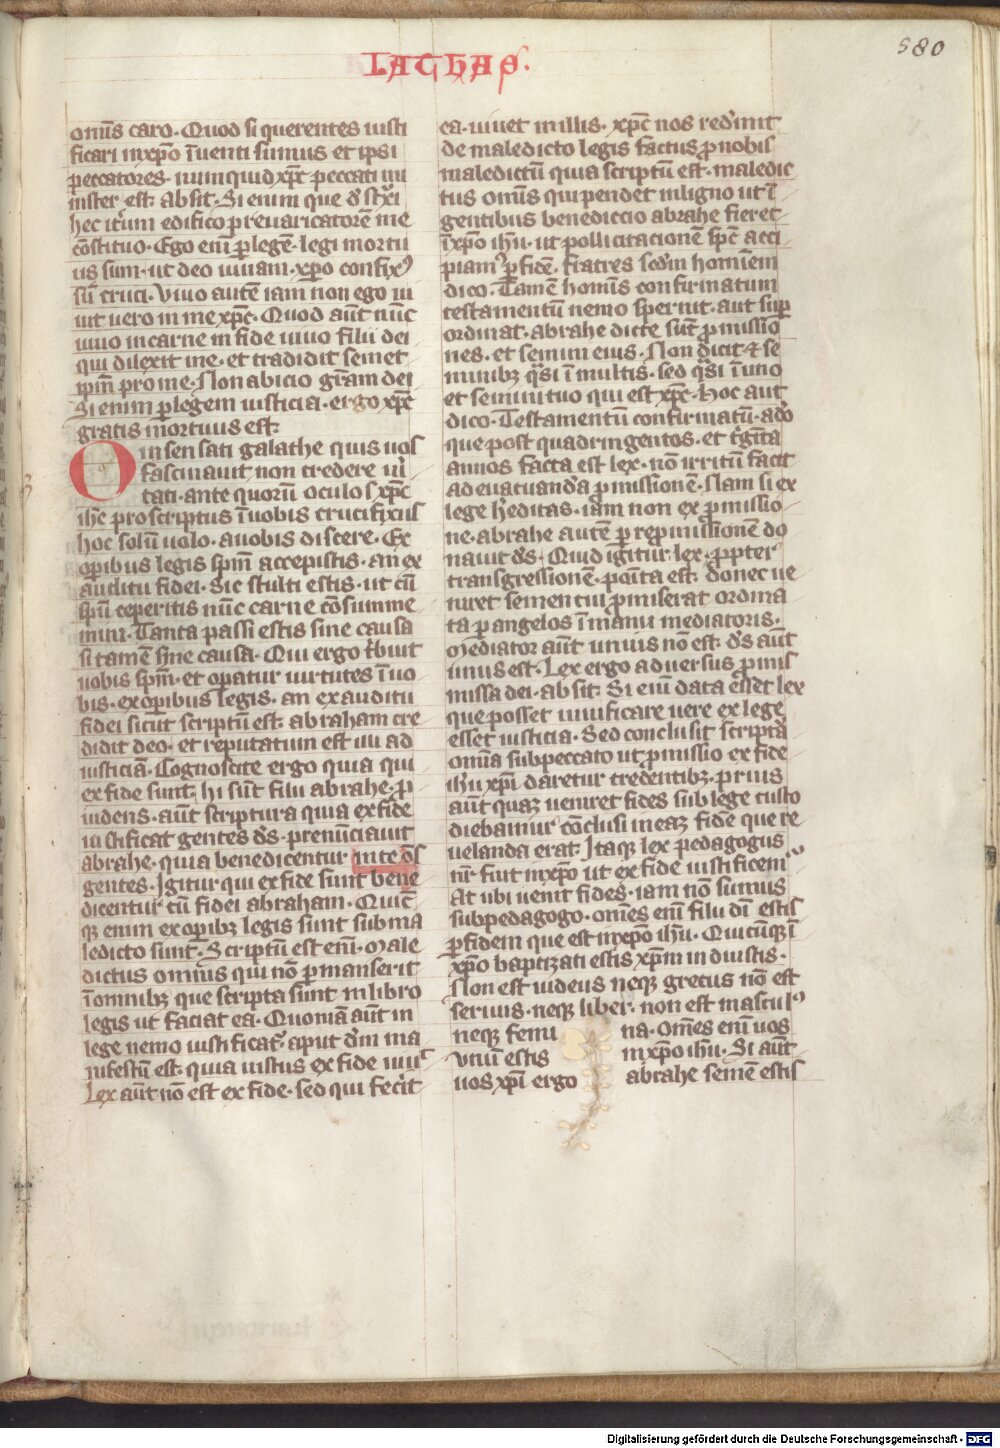 580
LATHAS.
omīs caro. Quod si querentes iusti
ficari in xp̄o īuenti sumus et ipsi
peccatores. numquid xp̄c peccati mi
nister est. absit. Si enim que dest͛xi
hec it͛um edifico preuaricatorē me
cōstituo. Ego enī ꝑ legē legi mortu
us sum. ut deo uiuam. xp̄o confixꝰ
sū cruci. Viuo autē iam non ego ui
uit uero in me xp̄c. Quod aūt nūc
uiuo in carne in fide uiuo filii dei
qui dilexit me. et tradidit semet
ipm̄ pro me. Non abicio gr̄am dei
Si enim ꝑ legem iusticia. ergo xp̄c
gratis mortuus est.
O insensati galathe quis uos
fascinauit non credere u͛i
tati. ante quorū oculos xp̄c
ihc̄ proscriptus ī uobis crucifixus
hoc solū uolo. a uobis discere. Ex
oꝑibus legis spm̄ accepistis. an ex
auditu fidei. Sic stulti estis. ut cū
spū ceperitis nūc carne cōsumme
mini. Tanta passi estis sine causa
si tamē sine causa. Qui ergo t͛buit
uobis spm̄. et oꝑatur uirtutes ī uo
bis. ex oꝑibus legis. an ex auditu
fidei sicut scriptū est. abraham cre
didit deo. et reputatum est illi ad
iusticiā. Cognoscite ergo quia qui
ex fide sunt. hi sūt filii abrahe. p̄
uidens. aūt scriptura quia ex fide
iustificat gentes ds̄. prenūciauit
abrahe. quia benedicentur in te oēs
gentes. Igitur qui ex fide sunt bene
dicentur cū fideli abraham. Quicū
qꝫ enim ex oꝑibꝫ legis sunt sub ma
ledicto sunt. Scriptū est enī. Male
dictus omnis qui nō ꝑmanserit
ī omnibꝫ que scripta sunt in libro
legis ut faciat ea. Quoniā aūt in
lege nemo iustificat͛ aput dm̄ ma
nifestū est. quia iustus ex fide uiuit
Lex aūt nō est ex fide. sed qui fec͛it
ea. uiuet in illis. xp̄c nos redimit
de maledicto legis factus ꝓ nobis
maledictū quia scriptū est. maledic
tus omīs qui pendet in ligno ut ī
gentibus benediccio abrahe fieret
ī xp̄o ihū. ut pollicitacionē spc̄ acci
piamꝰ ꝑ fidē. fratres scd̄m hominem
dico. Tamē homīs confirmatum
testamentū nemo spernit. aut suꝑ
ordinat. abrahe dicte sūt ꝓmissio
nes. et semini eius. Non dicit et se
minibꝫ q͛si ī multis. sed q͛si ī uno
et semini tuo qui est xp̄c. Hoc aut
dico. Testamentū confirmatū. a do
que post quadringentos. et t͛ginta
annos facta est lex. nō irritū facit
ad euacuanda ꝓmissionē. Nam si ex
lege h͛editas. iam non ex ꝓmissio
ne. abrahe autē ꝑ repmissionē do
nauit ds̄. Quid igitur lex. ꝓpter
transgressionē. poīta est. donec ue
niret semen cui ꝓmiserat ordina
ta ꝑ angelos ī manu mediatoris.
Mediator aūt unius nō est. ds̄ aūt
unus est. Lex ergo aduersus ꝓmis
missa dei. absit. Si enī data esset lex
que posset uiuificare uere ex lege
esset iusticia. Sed conclusit scriptā
omīa sub peccato ut ꝓmissio ex fide
ihū xp̄i daretur credentibꝫ. prius
aūt quaꝫ ueniret fides sub lege custo
diebamur cōclusi in eaꝫ fidē que re
uelanda erat. Itaqꝫ lex pedagogus
nr̄ fuit in xp̄o ut ex fide iustificemur
At ubi uenit fides. iam nō sumus
sub pedagogo. om̄es enī filii dī estis
ꝑ fidem que est in xp̄o ihū. Quicūqꝫ ī
xp̄o baptizati estis xp̄m induistis.
Non est iudeus neqꝫ grecus nō est
seruus. neqꝫ liber. non est masculꝰ
neqꝫ femi na. Om̄es enī uos
Vnū estis in xp̄o ihū. Si aūt
uos xp̄i ergo abrahe semē estis
Digitalisierung gefördert durch die Deutsche Forschungsgemeinschaft - DFG